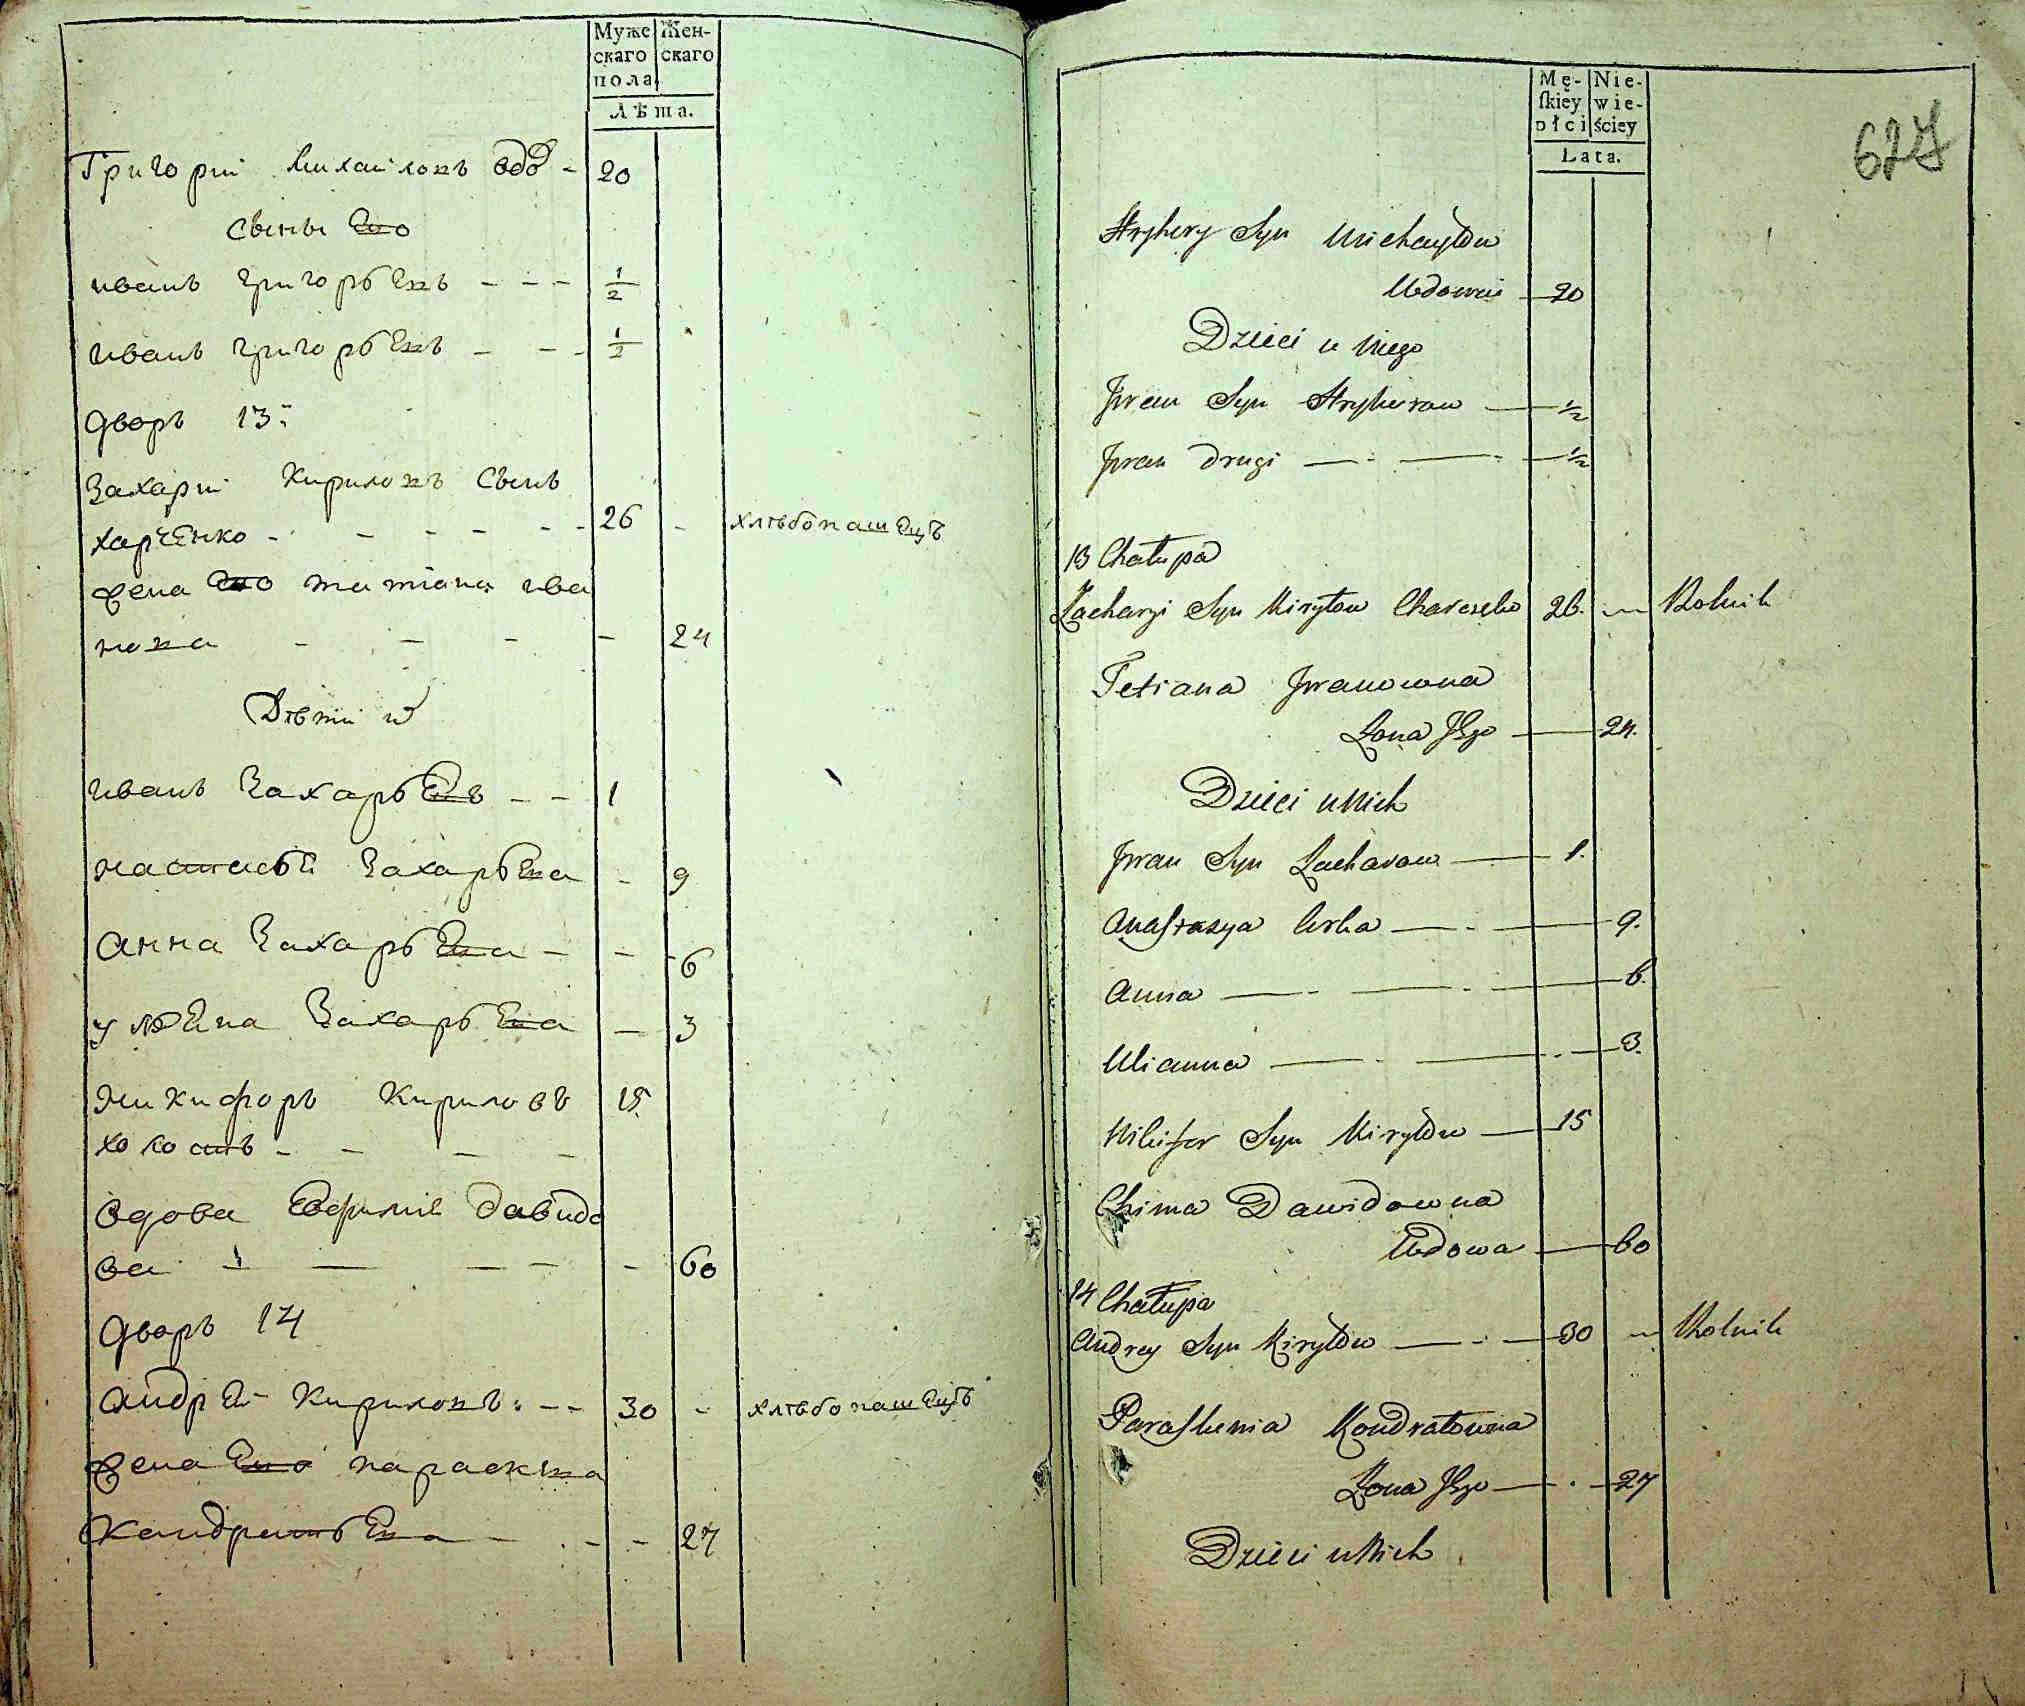 Муже Жен-
скаго скаго
пола.
Лѣта.
Григорий Михайловъ вдо - 20
Сыны Его
иванъ григорьевъ - - - 1/2
иванъ григорьевъ - - - 1/2
дворъ 13:
Захарий Кириловъ Сынъ
харченко - - - - - 26 - хлѣбопашецъ
жена Его татіана ива
нова - - - - 24
Дѣти их
иванъ Захарьевъ - - 1
настасья Захарьева - 9
Анна Захарьева - - - 6
ульяна Захарьева - 3
Никифоръ Кириловъ 15
холостъ - - - -
вдова Евфимія давидо
ва - - - - - 60
дворъ 14
андрей Кириловъ: - - 30 - хлѣбопашецъ
жена Его параскева
Кандратьева - - - 27
Mę- Nie-
ſkiey wie-
płci ściey
Lata.
627
Hryhory Syn Michayłow
Wdowiec 20
Dzieci u Niego
Jwan Syn Hryhorow 1/2
Jwan Drugi 1/2
13 Chałupa
Zacharyi Syn Kiryłow Charczenko 26. Rolnik
Tetiana Jwanowna
Żona JEgo 24.
Dzieci u Nich
Jwan Syn Zacharow 1.
Anaſtazya Curka 9.
Anna 6.
Ulianna 3.
Nikifor Syn Kiryłow 15
Chima Dawidowna
Wdowa 60
14 Chałupa
Andrey Syn Kiryłow 30 Rolnik
Paraſkewia Kondratowna
Żona JEgo 27
Dzieci u Nich